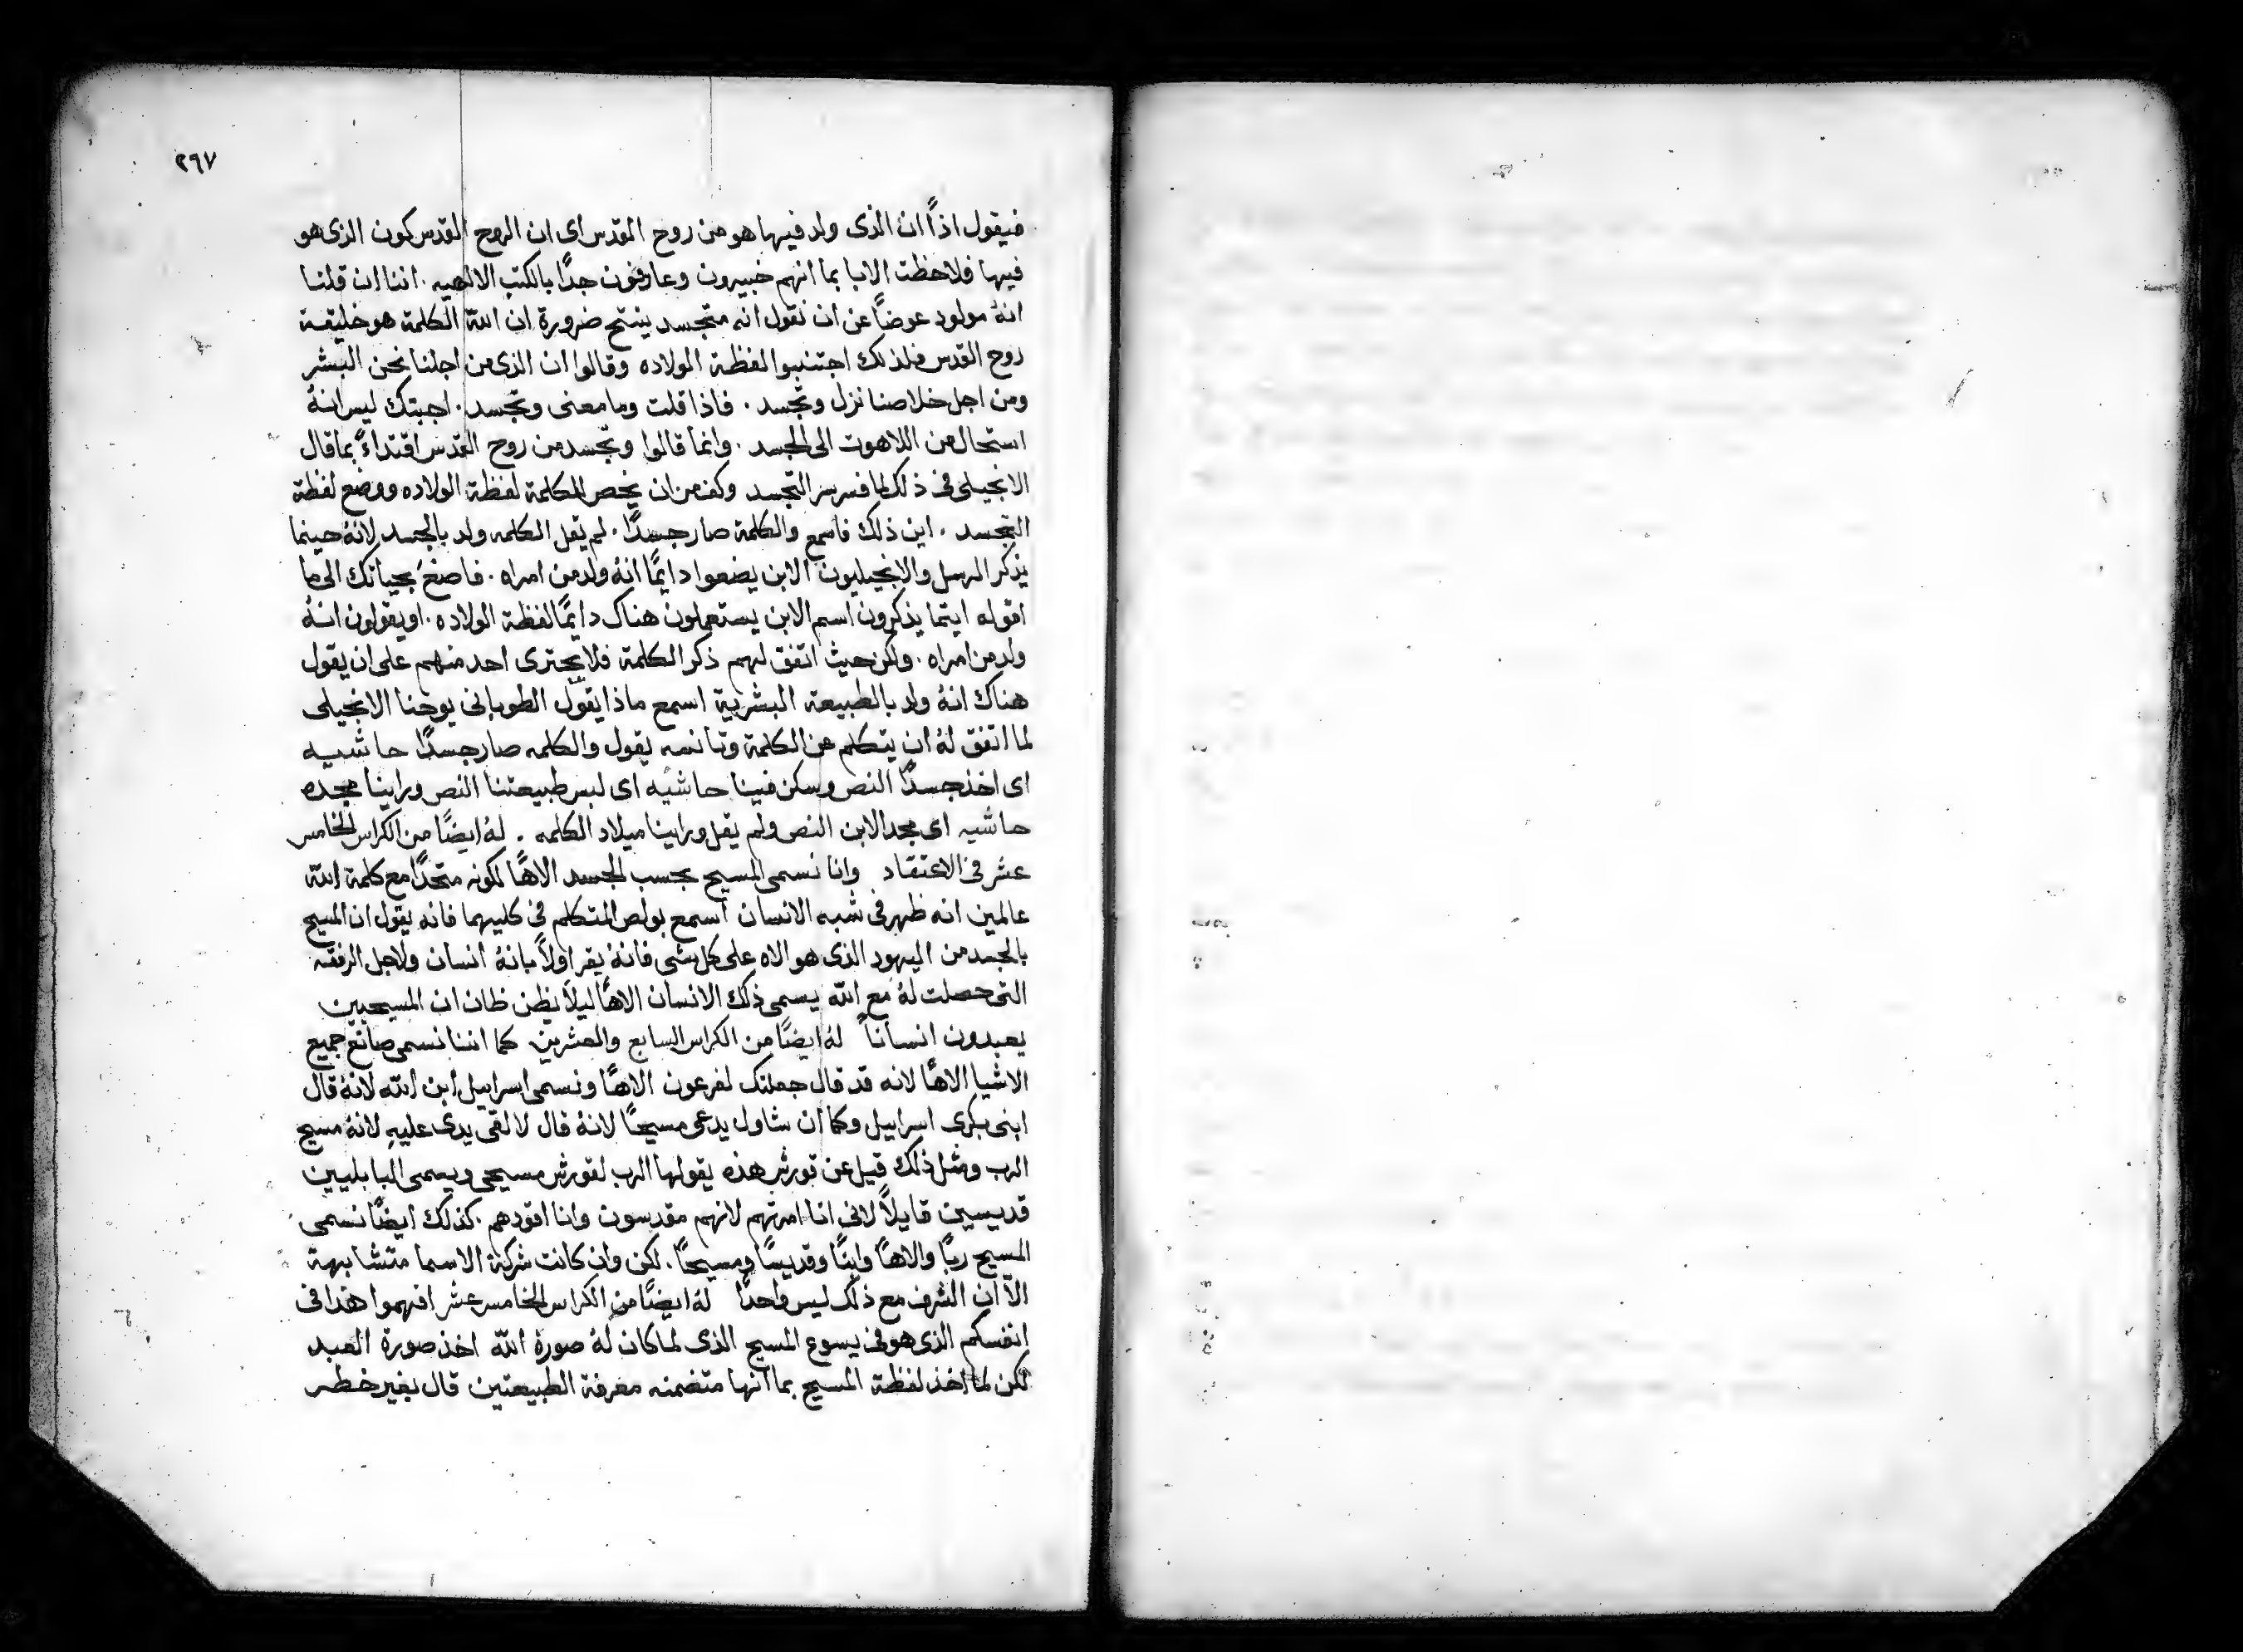 ٢٩٧
فيقول اذاً ان الذى ولد فيها هو من روح القدس اى ان الروح القدس كون الذى هو
فيها فلاحظت الابا بما انهم خبيرون وعارفون جدًا بالكتب الالهيه . اننا ان قلنا
انهُ مولود عوضاً عن ان نقول انه متجسد ينتج ضرورة ان اللّه الكلمة هو خليقة
روح القدس فلذلك اجتنبوا لفظة الولاده وقالوا ان الذى من اجلنا نحن البشر
ومن اجل خلاصنا نزل وتجسد . فاذا قلت وما معنى وتجسد . اجبتك ليس انهُ
استحال من اللاهوت الى الجسد . وانما قالوا وتجسد من روح القدس اقتداءً بما قال
الانجيلى فى ذلك لما فسر سر التجسد وكف من ان يخص للكلمة لفظة الولاده ووضع لفظة
التجسد . اين ذلك فاسمع والكلمة صار جسدًا . لم يقل الكلمه ولد بالجسد لانهُ حينما
يذكر الرسل والانجيليون الابن يضعوا دايمًا انهُ ولد من امراه . فاصغ بحياتك الى ما
اقوله اينما يذكرون اسم الابن يستعملون هناك دايمًا لفظة الولاده . او يقولون انهُ
ولد من امراه . ولكن حيث اتفق لهم ذكر الكلمة فلا يجترى احد منهم على ان يقول
هناك انهُ ولد بالطبيعة البشرية اسمع ماذا يقول الطوبانى يوحنا الانجيلى
لما اتفق لهُ ان يتكلم عن الكلمة وتانسه يقول والكلمه صار جسدًا حاشيه
اى اخذ جسدًا النص وسكن فينا حاشيه اى لبس طبيعتنا النص وراينا مجده
حاشيه اى مجد الابن النص ولم يقل وراينا ميلاد الكلمه . لهُ ايضًا من الكراس الخامس
عشر فى الاعتقاد وانا نسمى المسيح بحسب الجسد الاهًا لكونه متحدًا مع كلمة اللّه
عالمين انه ظهر فى شبه الانسان اسمع بولص المتكلم فى كليهما فانه يقول ان المسيح
بالجسد من اليهود الذى هو الاه على كل شى فانهُ يقر اولاً بانهُ انسان ولاجل الرفقه
التى حصلت لهُ مع اللّه يسمى ذلك الانسان الاهًا ليلا يظن ظان ان المسيحيين
يعبدون انساناً لهُ ايضًا من الكراس السابع والعشرين كما اننا نسمى صانع جميع
الاشيا الاهًا لانه قد قال جعلتك لفرعون الاهًا ونسمى اسراييل ابن اللّه لانهُ قال
ابنى بكرى اسراييل وكما ان شاول يدعى مسيحًا لانهُ قال لا القى يدى عليهِ لانهُ مسيح
الرب ومثل ذلك قيل عن قورش هذه يقولها الرب لقورش مسيحى ويسمى البابليين
قديسين قايلاً لانى انا امرتهم لانهم مقدسون وانا اقودهم . كذلك ايضًا نسمى
المسيح ربًا والاهًا وابنًا وقديسًا ومسيحًا . لكن وان كانت شركة الاسما متشابهة
الّا ان الشرف مع ذلك ليس واحدًا لهُ ايضًا من الكراس الخامس عشر افهموا هذا فى
انفسكم الذى هو فى يسوع المسيح الذى لما كان لهُ صورة اللّه اخذ صورة العبد
لكن لما اخذ لفظة المسيح بما انها متضمنه معرفة الطبيعتين قال بغير خطر